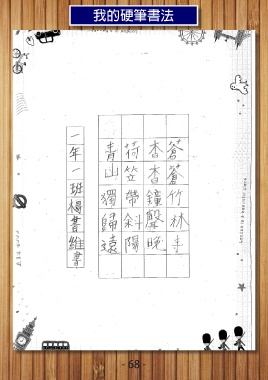 我的硬筆書法
蒼蒼竹林寺
杳杳鐘聲晚
荷笠帶斜陽
青山獨歸遠
一年一班楊維書
- 68 -